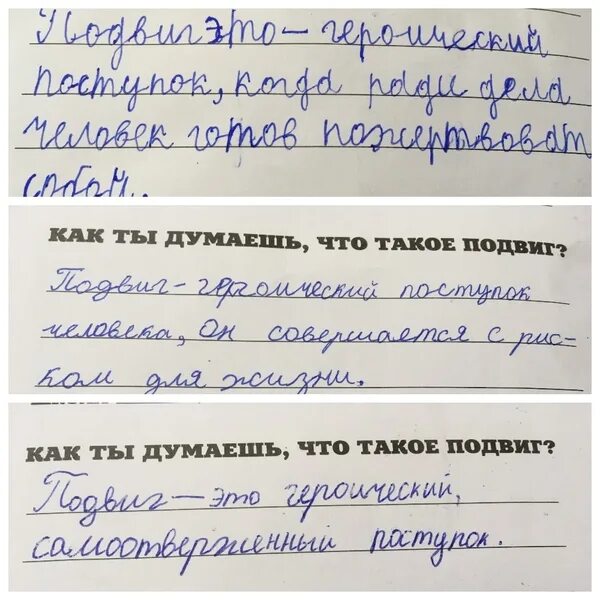 Подвиг это – героический
поступок, когда ради дела
человек готов пожертвоват
собой.
КАК ТЫ ДУМАЕШЬ, ЧТО ТАКОЕ ПОДВИГ?
Подвиг - героический поступок
человека, Он совершается с рис-
ком для жизни.
КАК ТЫ ДУМАЕШЬ, ЧТО ТАКОЕ ПОДВИГ?
Подвиг — это героический,
самоотверженный поступок.